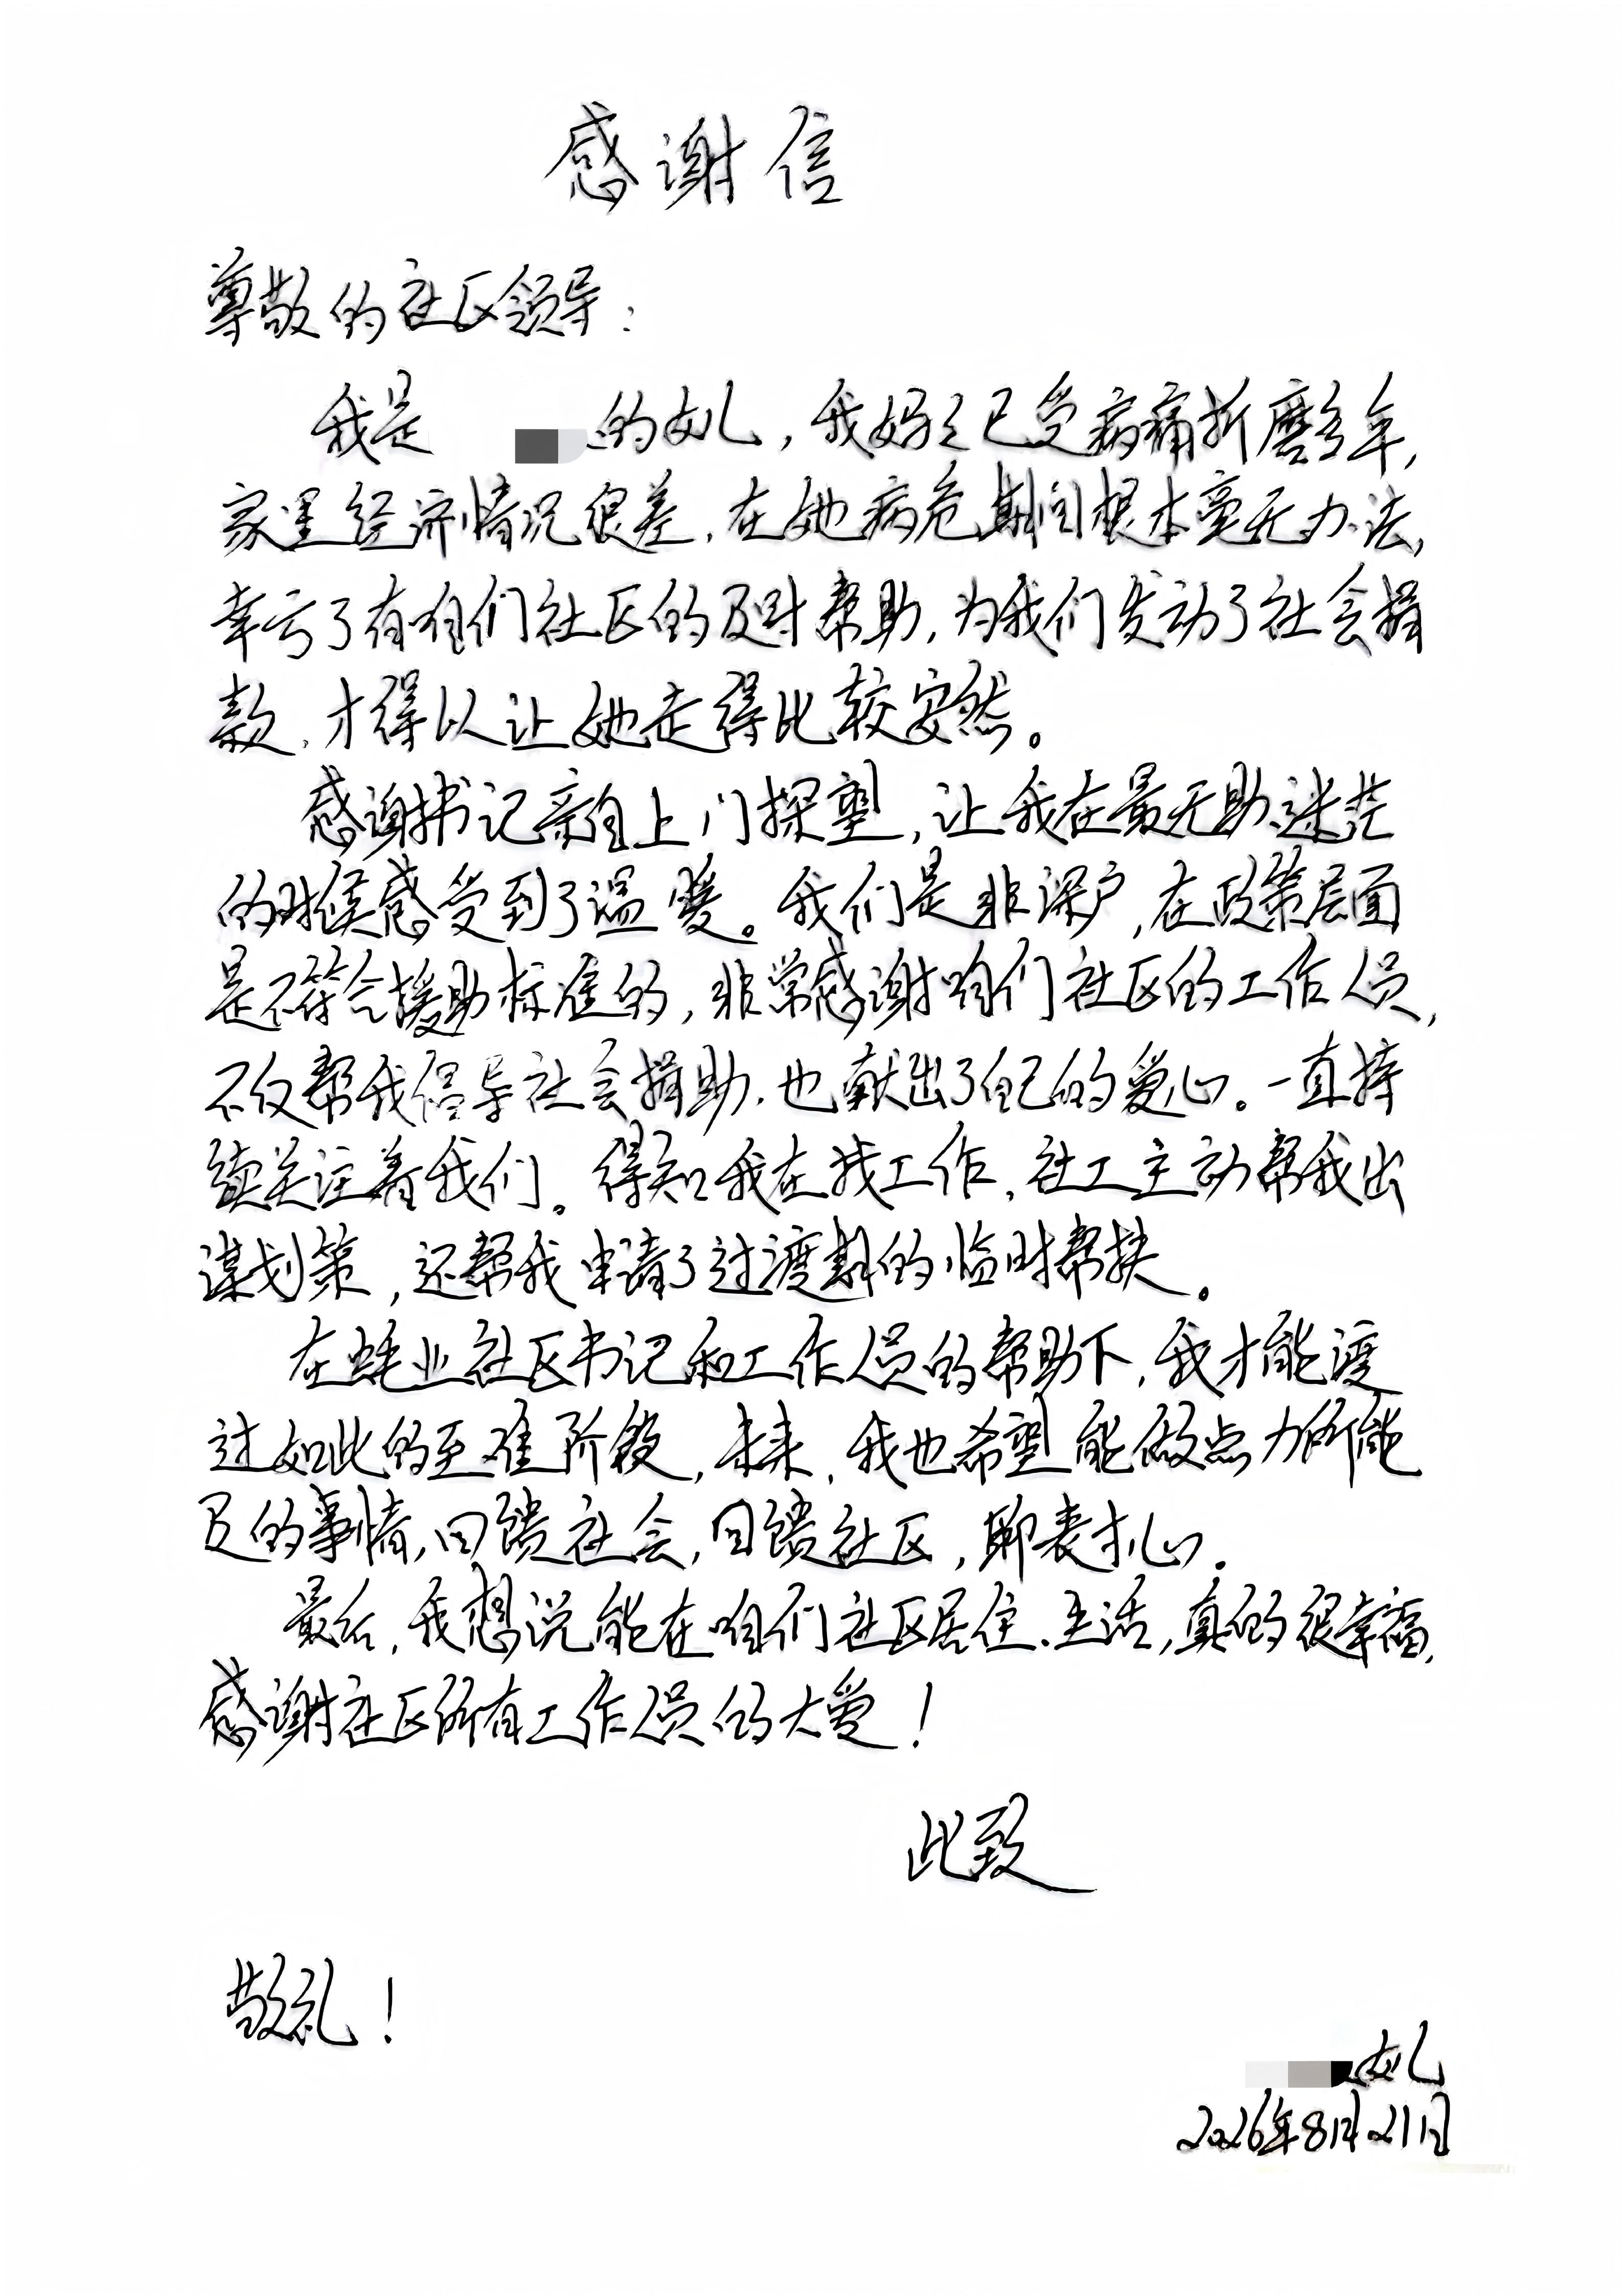 感谢信
尊敬的社区领导：
我是 的女儿，我妈妈已受病痛折磨多年，
家里经济情况很差，在她病危期间根本毫无办法，
幸亏了有咱们社区的及时帮助，为我们发动了社会捐
款，才得以让她走得比较安然。
感谢书记亲自上门探望，让我在最无助、迷茫
的时候感受到了温暖。我们是非深户，在政策层面
是不符合援助标准的，非常感谢咱们社区的工作人员，
不仅帮我倡导社会捐助，也献出了自己的爱心。一直持
续关注着我们。得知我在找工作，社工主动帮我出
谋划策，还帮我申请了过渡期的临时帮扶。
在蚝业社区书记和工作人员的帮助下，我才能渡
过如此的至难阶段，未来，我也希望能做点力所能
及的事情，回馈社会，回馈社区，聊表寸心。
最后，我想说能在咱们社区居住、生活，真的很幸福，
感谢社区所有工作人员的大爱！
此致
敬礼！
女儿
2026年8月21日